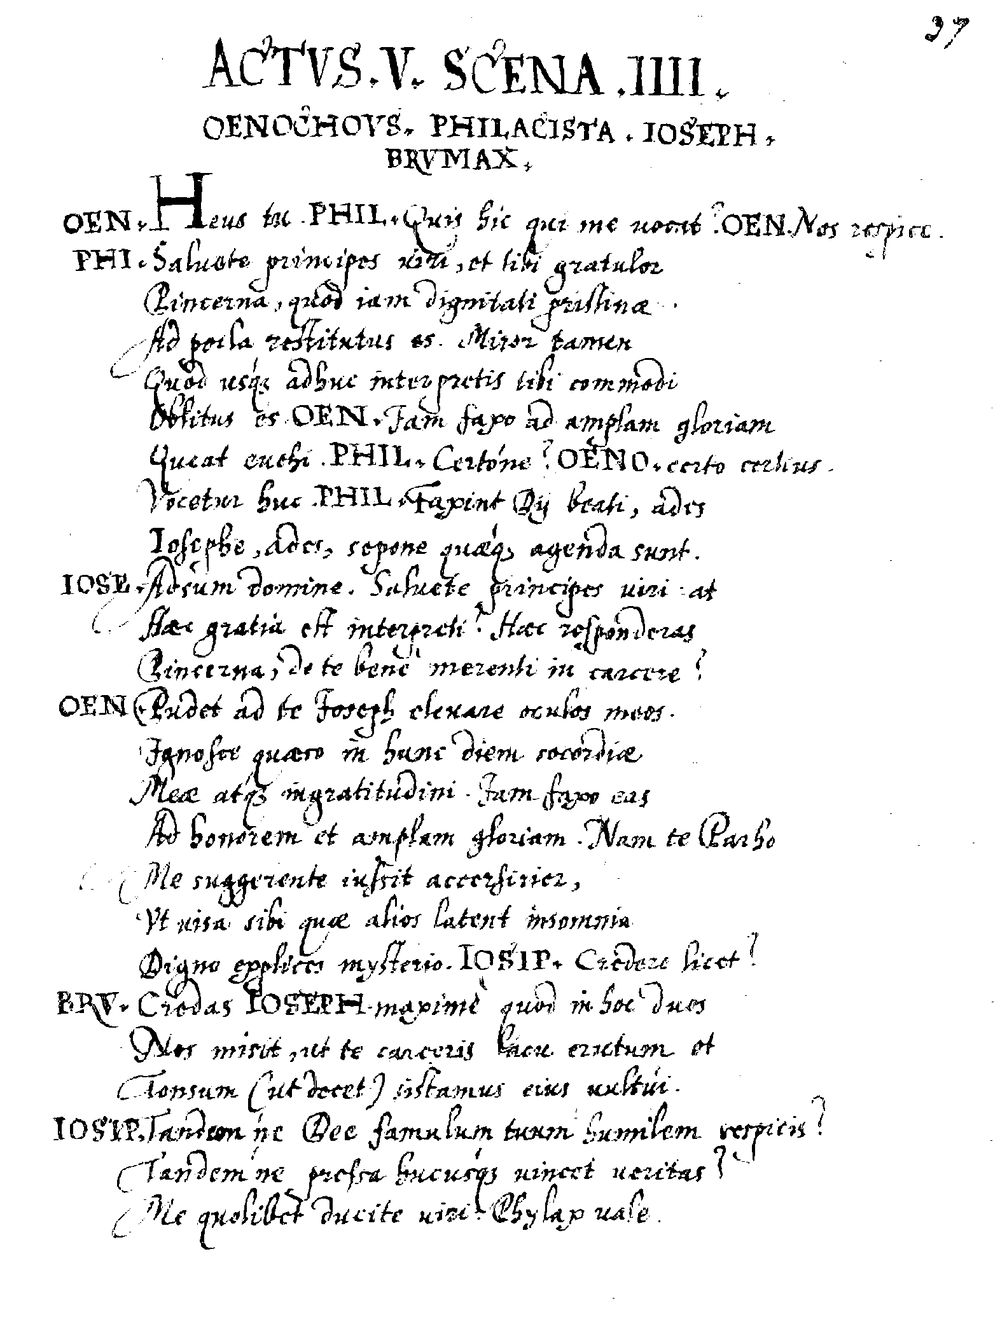 37
ACTVS. V. SCENA. IIII.
OENOCHOVS. PHILACISTA. IOSEPH.
BRVMAX.
OEN. Heus tu. PHIL. Quis hic qui me uocat? OEN. Nos respice.
PHI. Saluete principes uiri, et tibi gratulor
Pincerna, quòd iam dignitati pristinæ.
Ad posła restitutus es. Miror tamen
Quòd usq; adhuc interpretis tibi commodi
Oblitus es. OEN. Jam faxo ad amplam gloriam
Queat euehi. PHIL. Certóne? OENO. certo certius.
Vocetur huc. PHIL. Faxint Dij beati, ades
Iosephe, ades, sepone quæq; agenda sunt.
IOSE. Adsum domine. Saluete principes uiri. at
Hæc gratia est interpreti? Hæc responderas
Pincerna, de te benè merenti in carcere?
OEN. Pudet ad te Joseph eleuare oculos meos.
Jgnosce quæso in hunc diem socordiæ
Meæ atq; ingratitudini. Jam faxo eas
Ad honorem et amplam gloriam. Nam te Parho
Me suggerente iussit accersirier,
Vt uisa sibi quæ alios latent insomnia
Digno explices mysterio. IOSIP. Credere licet?
BRV. Credas IOSEPH. maximè quòd in hoc duos
Nos misit, ut te carceris lacu erutum et
Tonsum (ut decet) sistamus eius uultui.
IOSIP. Tandem ne Dee famulum tuum humilem respicis?
Tandem ne pressa hucusq; uincet ueritas?
Me quolibet ducite uiri. Phylax uale.